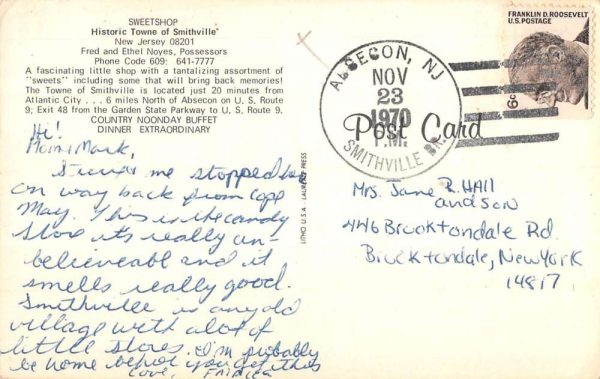 SWEETSHOP
Historic Towne of Smithville
New Jersey 08201
Fred and Ethel Noyes, Possessors
Phone Code 609: 641-7777
A fascinating little shop with a tantalizing assortment of
"sweets" including some that will bring back memories!
The Towne of Smithville is located just 20 minutes from
Atlantic City . . . 6 miles North of Absecon on U. S. Route
9; Exit 48 from the Garden State Parkway to U. S. Route 9.
COUNTRY NOONDAY BUFFET
DINNER EXTRAORDINARY
Hi!
Mom & Mark,
me stopped
on way back from Cape
May. This is the candy
store it's really un-
believeable and it
smells really good.
Smithville is an old
village with a lot of
little stores. I'll probably
be home before you get this
Love,
LITHO U.S.A. LAURENCE PRESS
ABSECON, NJ
NOV
23
1970
P.M.
SMITHVILLE BR.
Post Card
FRANKLIN D. ROOSEVELT
U.S. POSTAGE
6c
Mrs. Jane R. HAll
and son
446 Brooktondale Rd.
Brooktondale, New York
14817